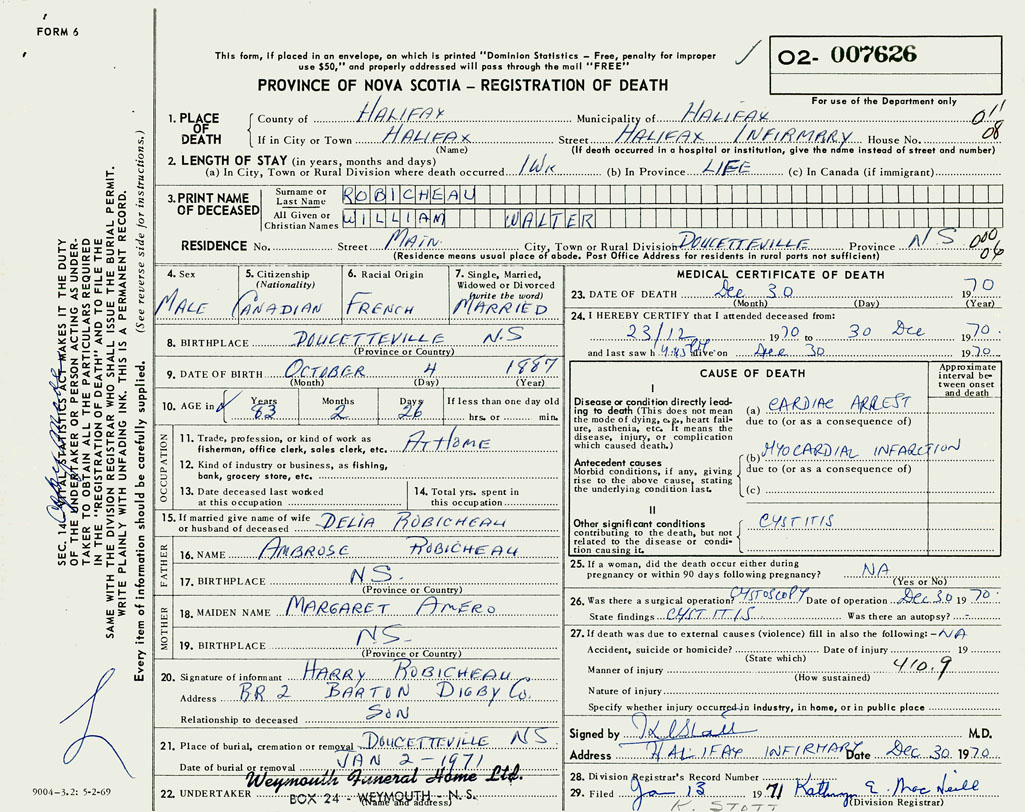 FORM 6
This form, if placed in an envelope, on which is printed "Dominion Statistics – Free, penalty for improper
use $50," and properly addressed will pass through the mail "FREE"
PROVINCE OF NOVA SCOTIA – REGISTRATION OF DEATH
02- 007626
For use of the Department only
1. PLACE OF DEATH County of HALIFAX Municipality of HALIFAX 011
If in City or Town HALIFAX Street HALIFAX INFIRMARY House No. 08
(Name) (If death occurred in a hospital or institution, give the name instead of street and number)
2. LENGTH OF STAY (in years, months and days)
(a) In City, Town or Rural Division where death occurred 1 WK (b) In Province LIFE (c) In Canada (if immigrant)
3. PRINT NAME OF DECEASED Surname or Last Name ROBICHEAU
All Given or Christian Names WILLIAM WALTER
RESIDENCE No. Street MAIN City, Town or Rural Division DOUCETTEVILLE Province N S 000
(Residence means usual place of abode. Post Office Address for residents in rural parts not sufficient) 06
4. Sex MALE
5. Citizenship (Nationality) CANADIAN
6. Racial Origin FRENCH
7. Single, Married, Widowed or Divorced (write the word) MARRIED
8. BIRTHPLACE DOUCETTEVILLE N.S
(Province or Country)
9. DATE OF BIRTH OCTOBER 4 1887
(Month) (Day) (Year)
10. AGE in Years 83 Months 2 Days 26 If less than one day old hrs. or min.
OCCUPATION
11. Trade, profession, or kind of work as
fisherman, office clerk, sales clerk, etc. AT HOME
12. Kind of industry or business, as fishing,
bank, grocery store, etc.
13. Date deceased last worked
at this occupation
14. Total yrs. spent in
this occupation
15. If married give name of wife
or husband of deceased DELIA ROBICHEAU
FATHER
16. NAME AMBROSE ROBICHEAU
17. BIRTHPLACE N S.
(Province or Country)
MOTHER
18. MAIDEN NAME MARGARET AMERO
19. BIRTHPLACE N S.
(Province or Country)
20. Signature of informant HARRY ROBICHEAU
Address RR 2 BARTON DIGBY Co.
Relationship to deceased SON
21. Place of burial, cremation or removal DOUCETTEVILLE N S
Date of burial or removal JAN 2 - 1971
22. UNDERTAKER Weymouth Funeral Home Ltd.
BOX 24 - WEYMOUTH - N. S.
(Name and address)
MEDICAL CERTIFICATE OF DEATH
23. DATE OF DEATH Dec 30 1970
(Month) (Day) (Year)
24. I HEREBY CERTIFY that I attended deceased from:
23/12 1970 to 30 Dec 1970.
and last saw h alive on Dec 30 1970.
CAUSE OF DEATH
Approximate interval between onset and death
I
Disease or condition directly leading
to death (This does not mean
the mode of dying, e.g., heart failure,
asthenia, etc. It means the
disease, injury, or complication
which caused death.)
(a) CARDIAC ARREST
due to (or as a consequence of)
Antecedent causes
Morbid conditions, if any, giving
rise to the above cause, stating
the underlying condition last.
(b) MYOCARDIAL INFARCTION
due to (or as a consequence of)
(c)
II
Other significant conditions
contributing to the death, but not
related to the disease or condition
causing it.
CYSTITIS
25. If a woman, did the death occur either during
pregnancy or within 90 days following pregnancy? NA
(Yes or No)
26. Was there a surgical operation? CYSTOSCOPY Date of operation Dec 30 1970.
State findings CYSTITIS Was there an autopsy? -
27. If death was due to external causes (violence) fill in also the following: - NA
Accident, suicide or homicide? Date of injury 19
(State which)
Manner of injury 410.9
(How sustained)
Nature of injury
Specify whether injury occurred in industry, in home, or in public place
Signed by M.D.
Address HALIFAX INFIRMARY Date Dec. 30 1970.
28. Division Registrar's Record Number
29. Filed Jan 13 1971 Kathryn E. MacNeill
(Division Registrar)
K. STOTT
SEC. 14. VITAL STATISTICS ACT MAKES IT THE DUTY
OF THE UNDERTAKER OR PERSON ACTING AS UNDERTAKER
TO OBTAIN ALL THE PARTICULARS REQUIRED
IN THE "REGISTRATION OF DEATH" AND TO FILE THE
SAME WITH THE DIVISION REGISTRAR WHO SHALL ISSUE THE BURIAL PERMIT.
WRITE PLAINLY WITH UNFADING INK. THIS IS A PERMANENT RECORD.
Every item of information should be carefully supplied. (See reverse side for instructions.)
9004-3.2: 5-2-69